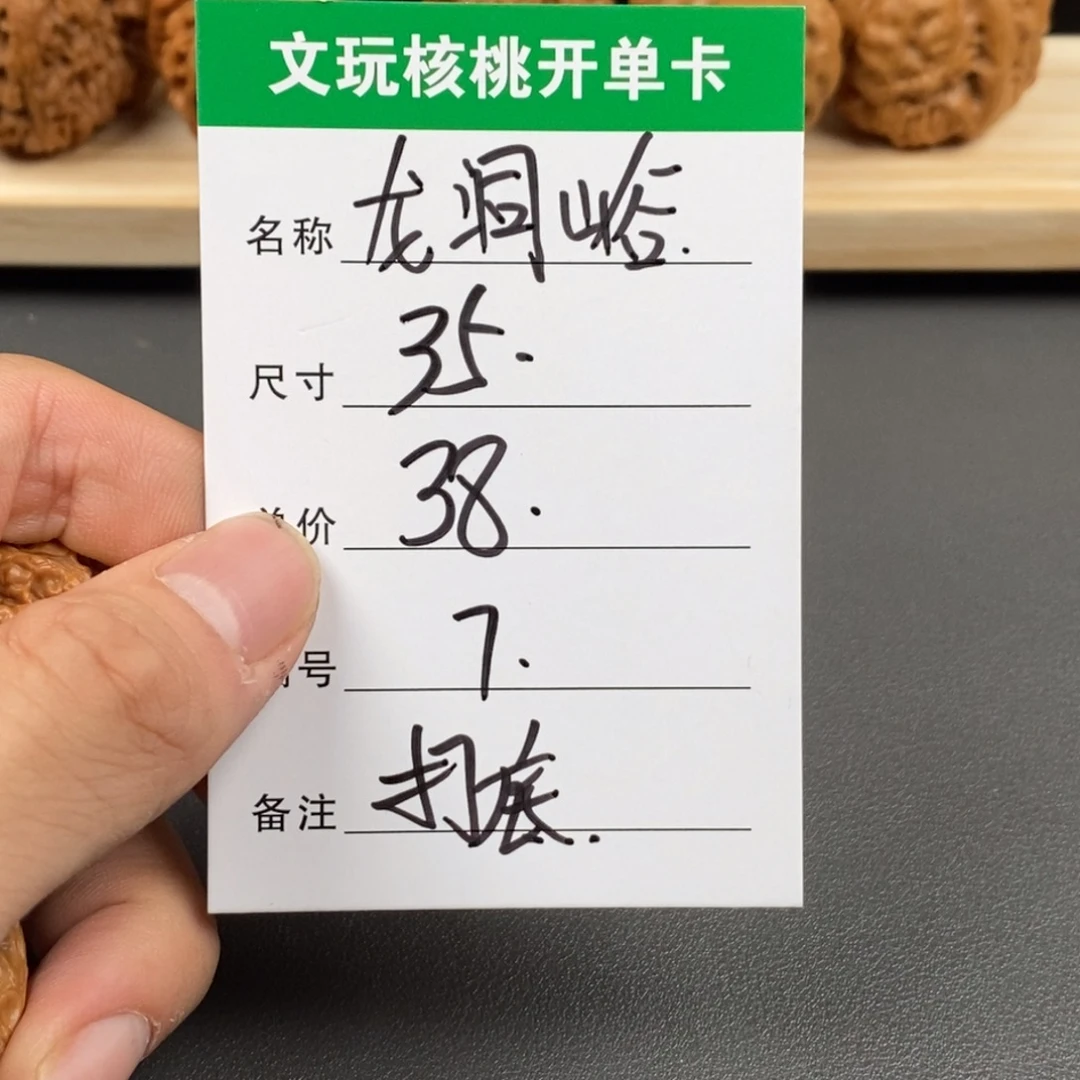 文玩核桃开单卡
名称 龙洞峪.
尺寸 35.
单价 38.
编号 7.
备注 打底.